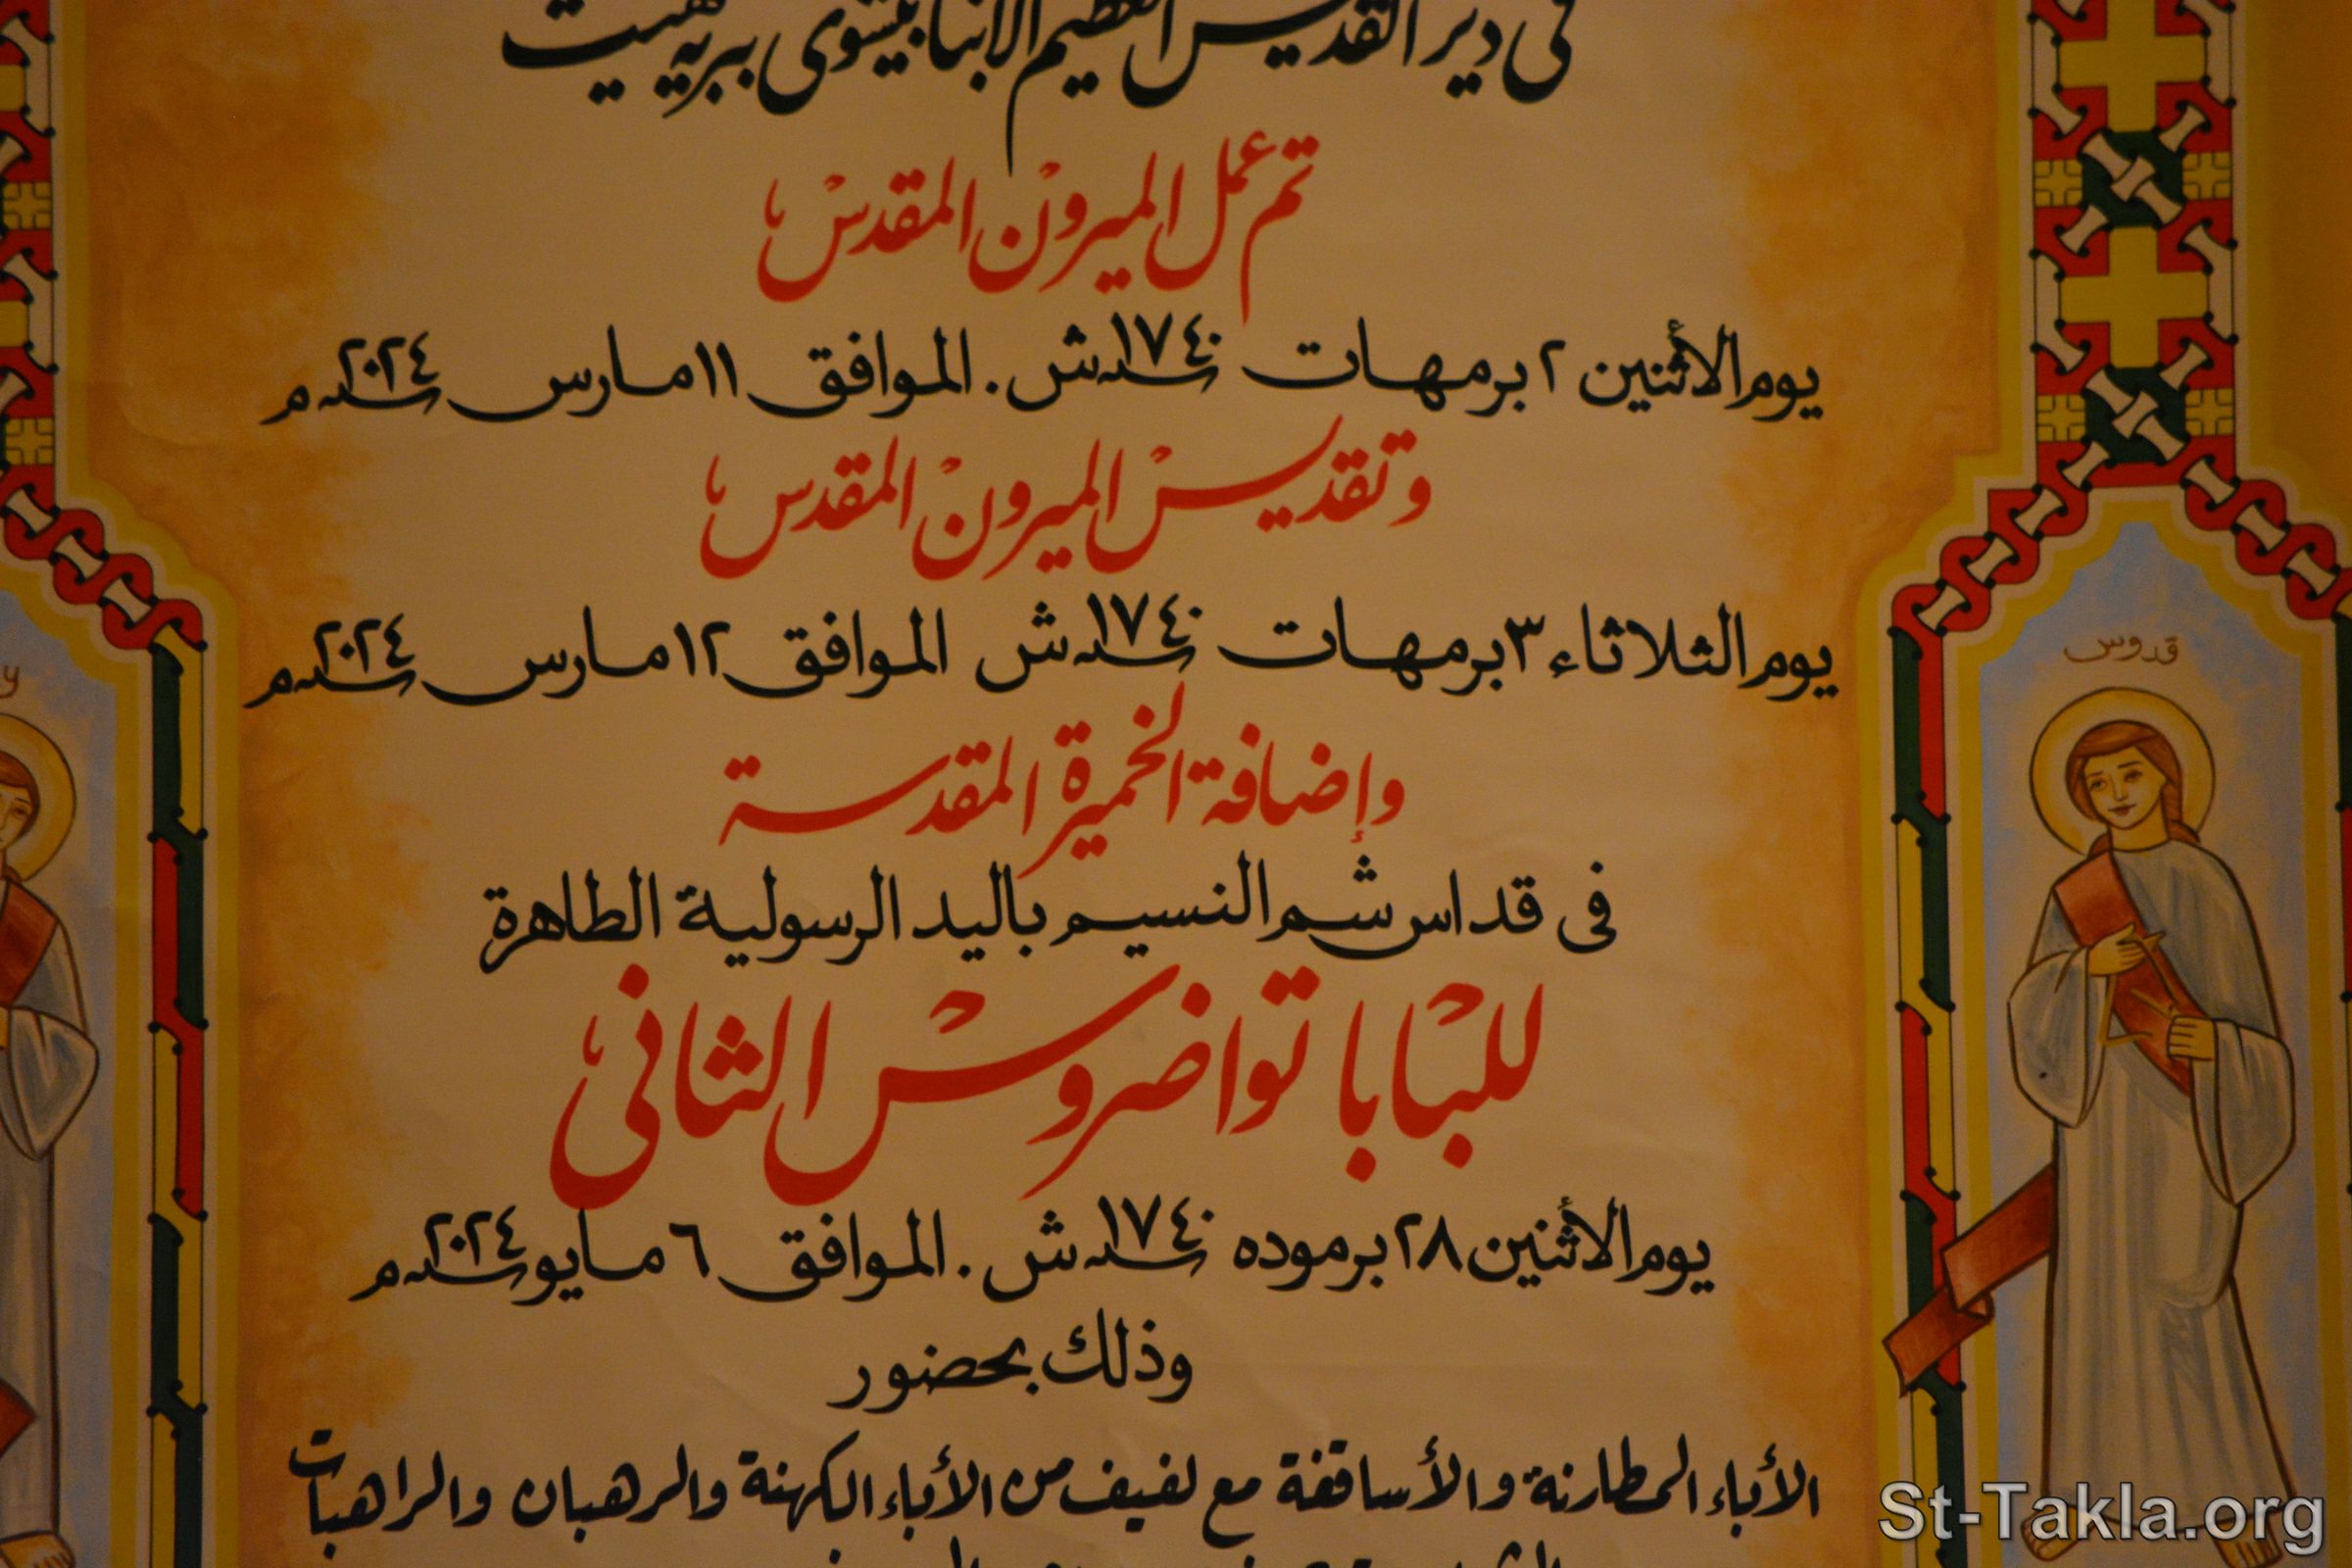 فى دير القديس العظيم الأنبا بيشوى ببرية شيهيت
تم عمل الميرون المقدس
يوم الأثنين ٢ برمهات سنة ١٧٤٠ ش . الموافق ١١ مارس سنة ٢٠٢٤ م
وتقديس الميرون المقدس
يوم الثلاثاء ٣ برمهات سنة ١٧٤٠ ش الموافق ١٢ مارس سنة ٢٠٢٤ م
وإضافة الخميرة المقدسة
فى قداس شم النسيم باليد الرسولية الطاهرة
للبابا تواضروس الثانى
يوم الأثنين ٢٨ برموده سنة ١٧٤٠ ش . الموافق ٦ مايو سنة ٢٠٢٤ م
وذلك بحضور
الأباء المطارنة والأساقفة مع لفيف من الأباء الكهنة والرهبان والراهبات
قدوس
St-Takla.org